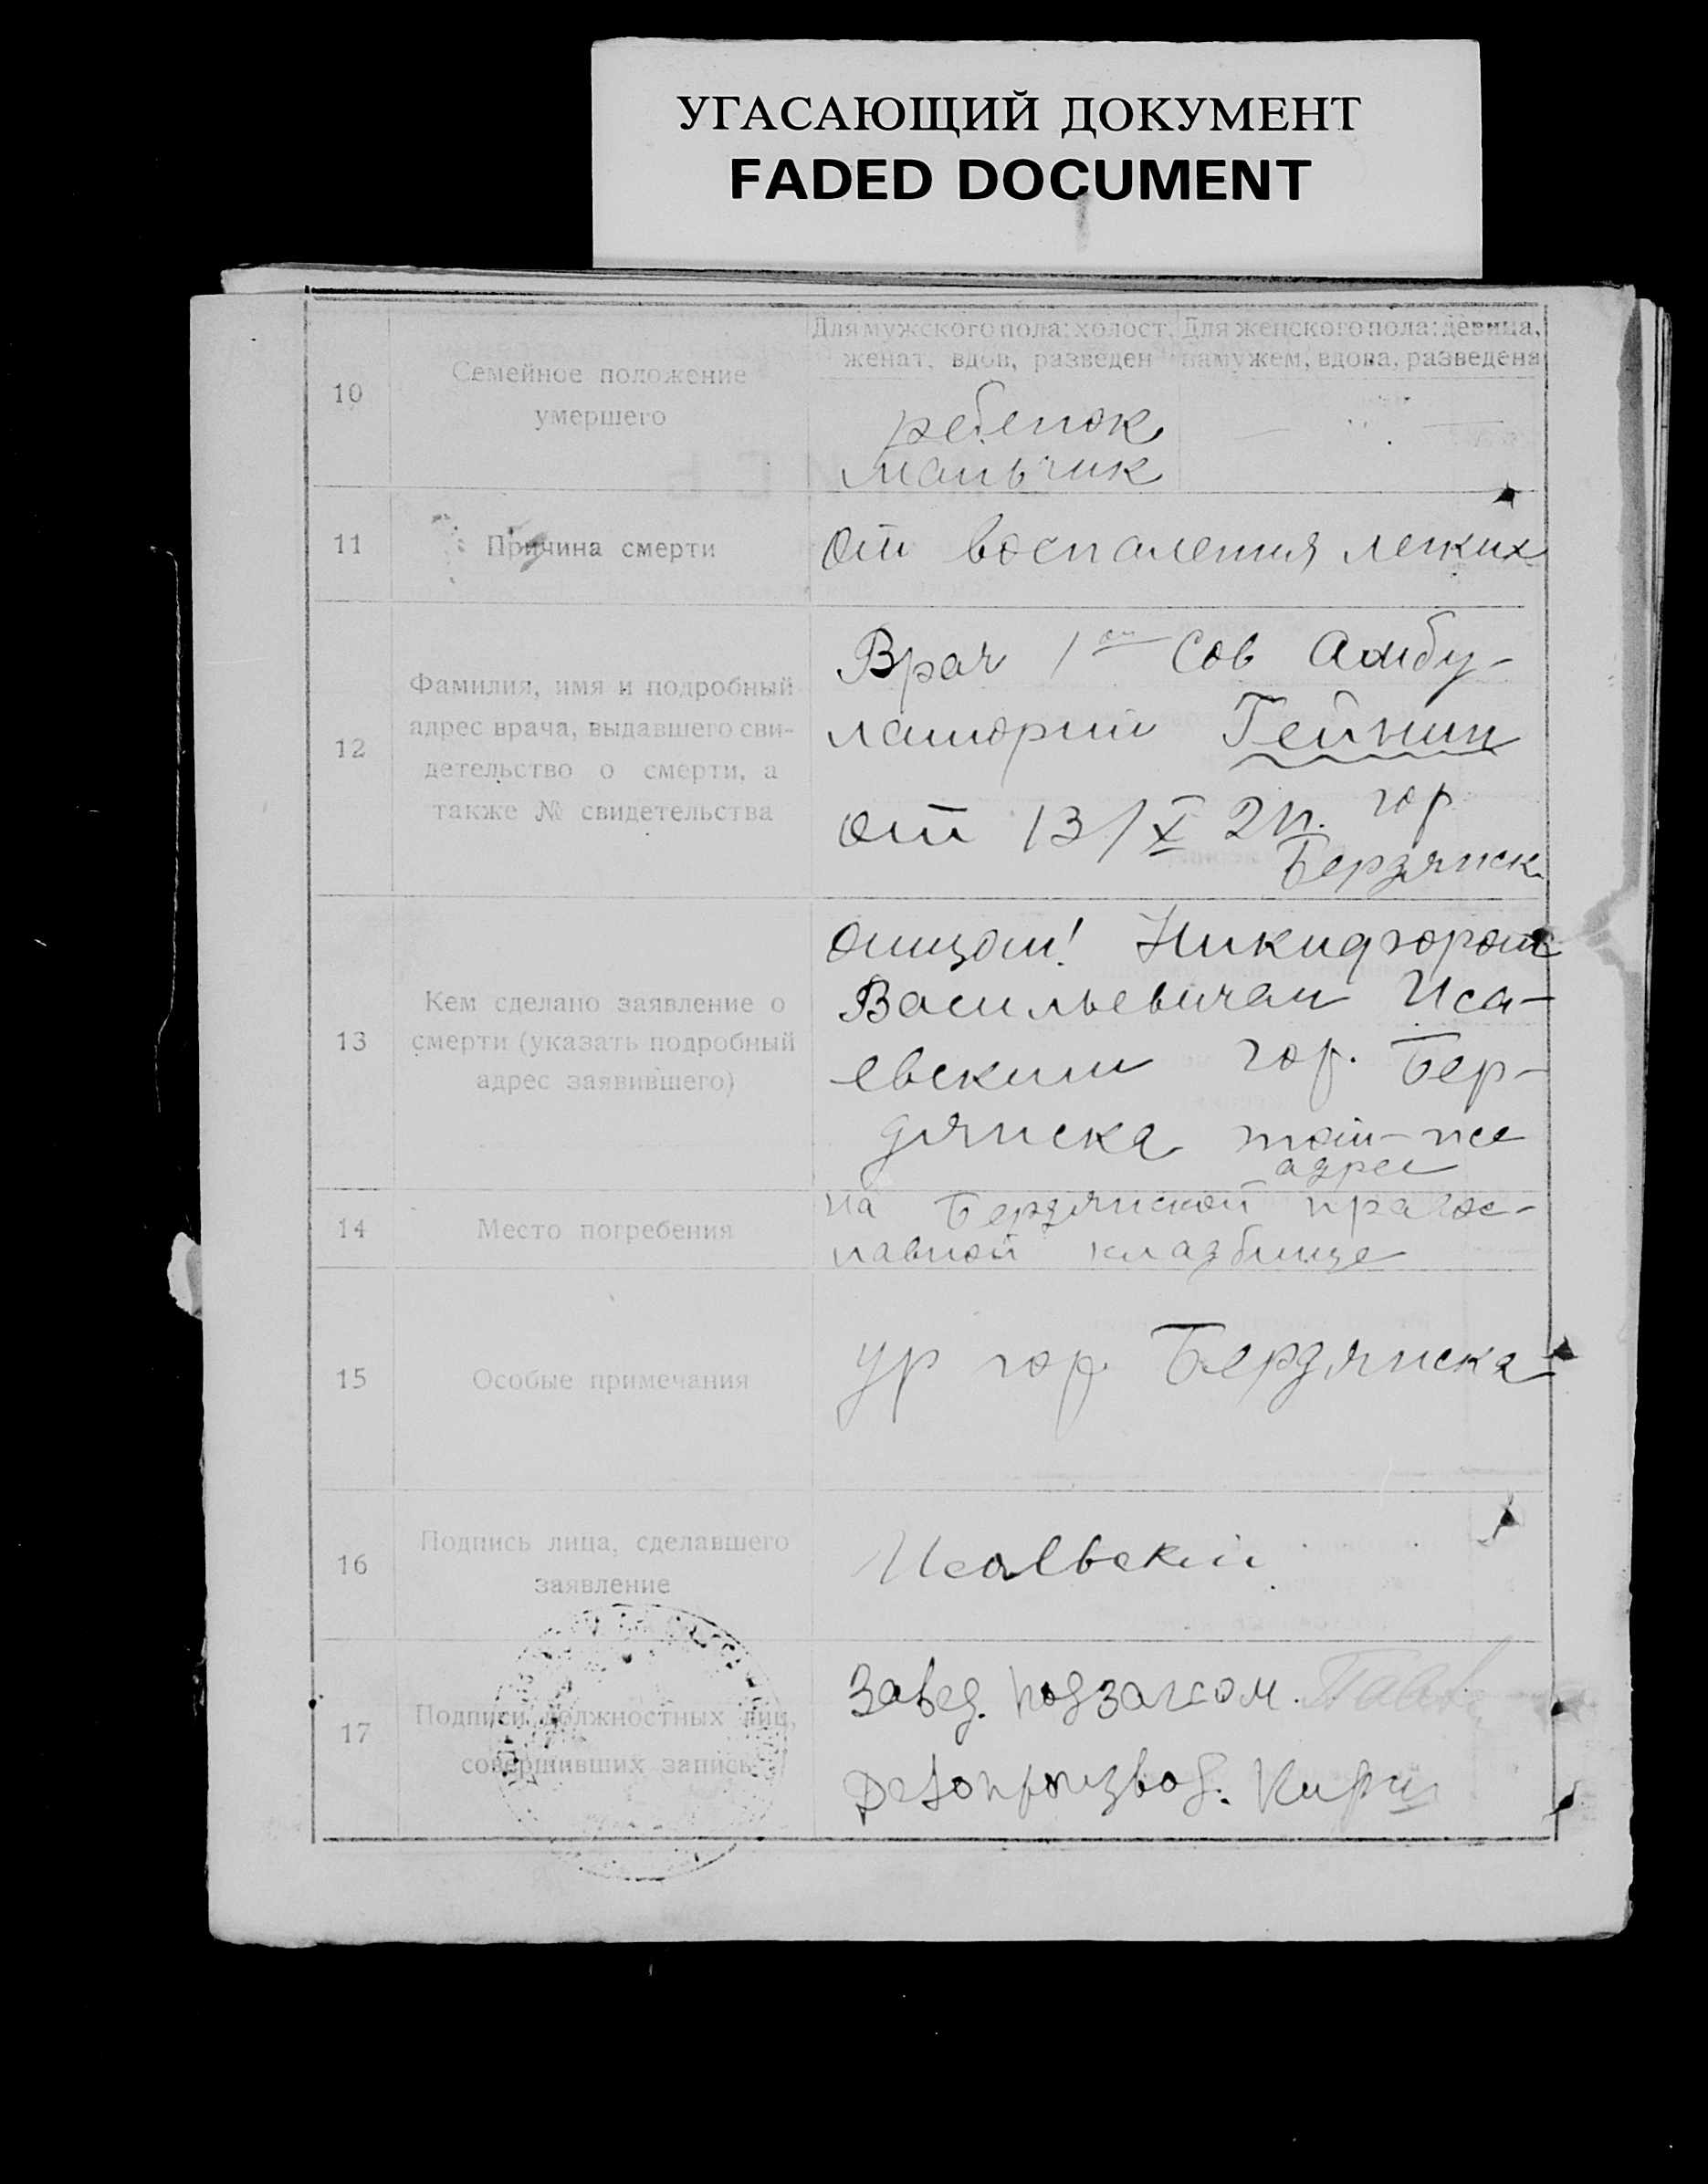 УГАСАЮЩИЙ ДОКУМЕНТ
FADED DOCUMENT
10
Семейное положение
умершего
Для мужского пола: холост,
женат, вдов, разведен
Для женского пола: девица,
замужем, вдова, разведена
ребенок
мальчик
11
Причина смерти
от воспаления легких
12
Фамилия, имя и подробный
адрес врача, выдавшего сви-
детельство о смерти, а
также № свидетельства
Врач 1ой Сов Амбу-
латории
от 13/X 2 гор
Бердянск
13
Кем сделано заявление о
смерти (указать подробный
адрес заявившего)
отцом! Никифором
Васильевичем Иса-
евским гор. Бер-
дянска той-же
адрес
14
Место погребения
на Бердянской правос-
лавной кладбище
15
Особые примечания
ур гор Бердянска
16
Подпись лица, сделавшего
заявление
Исаевский
17
Подписи должностных лиц,
совершивших запись
Завед. подзагсом.
Делопроизвод.